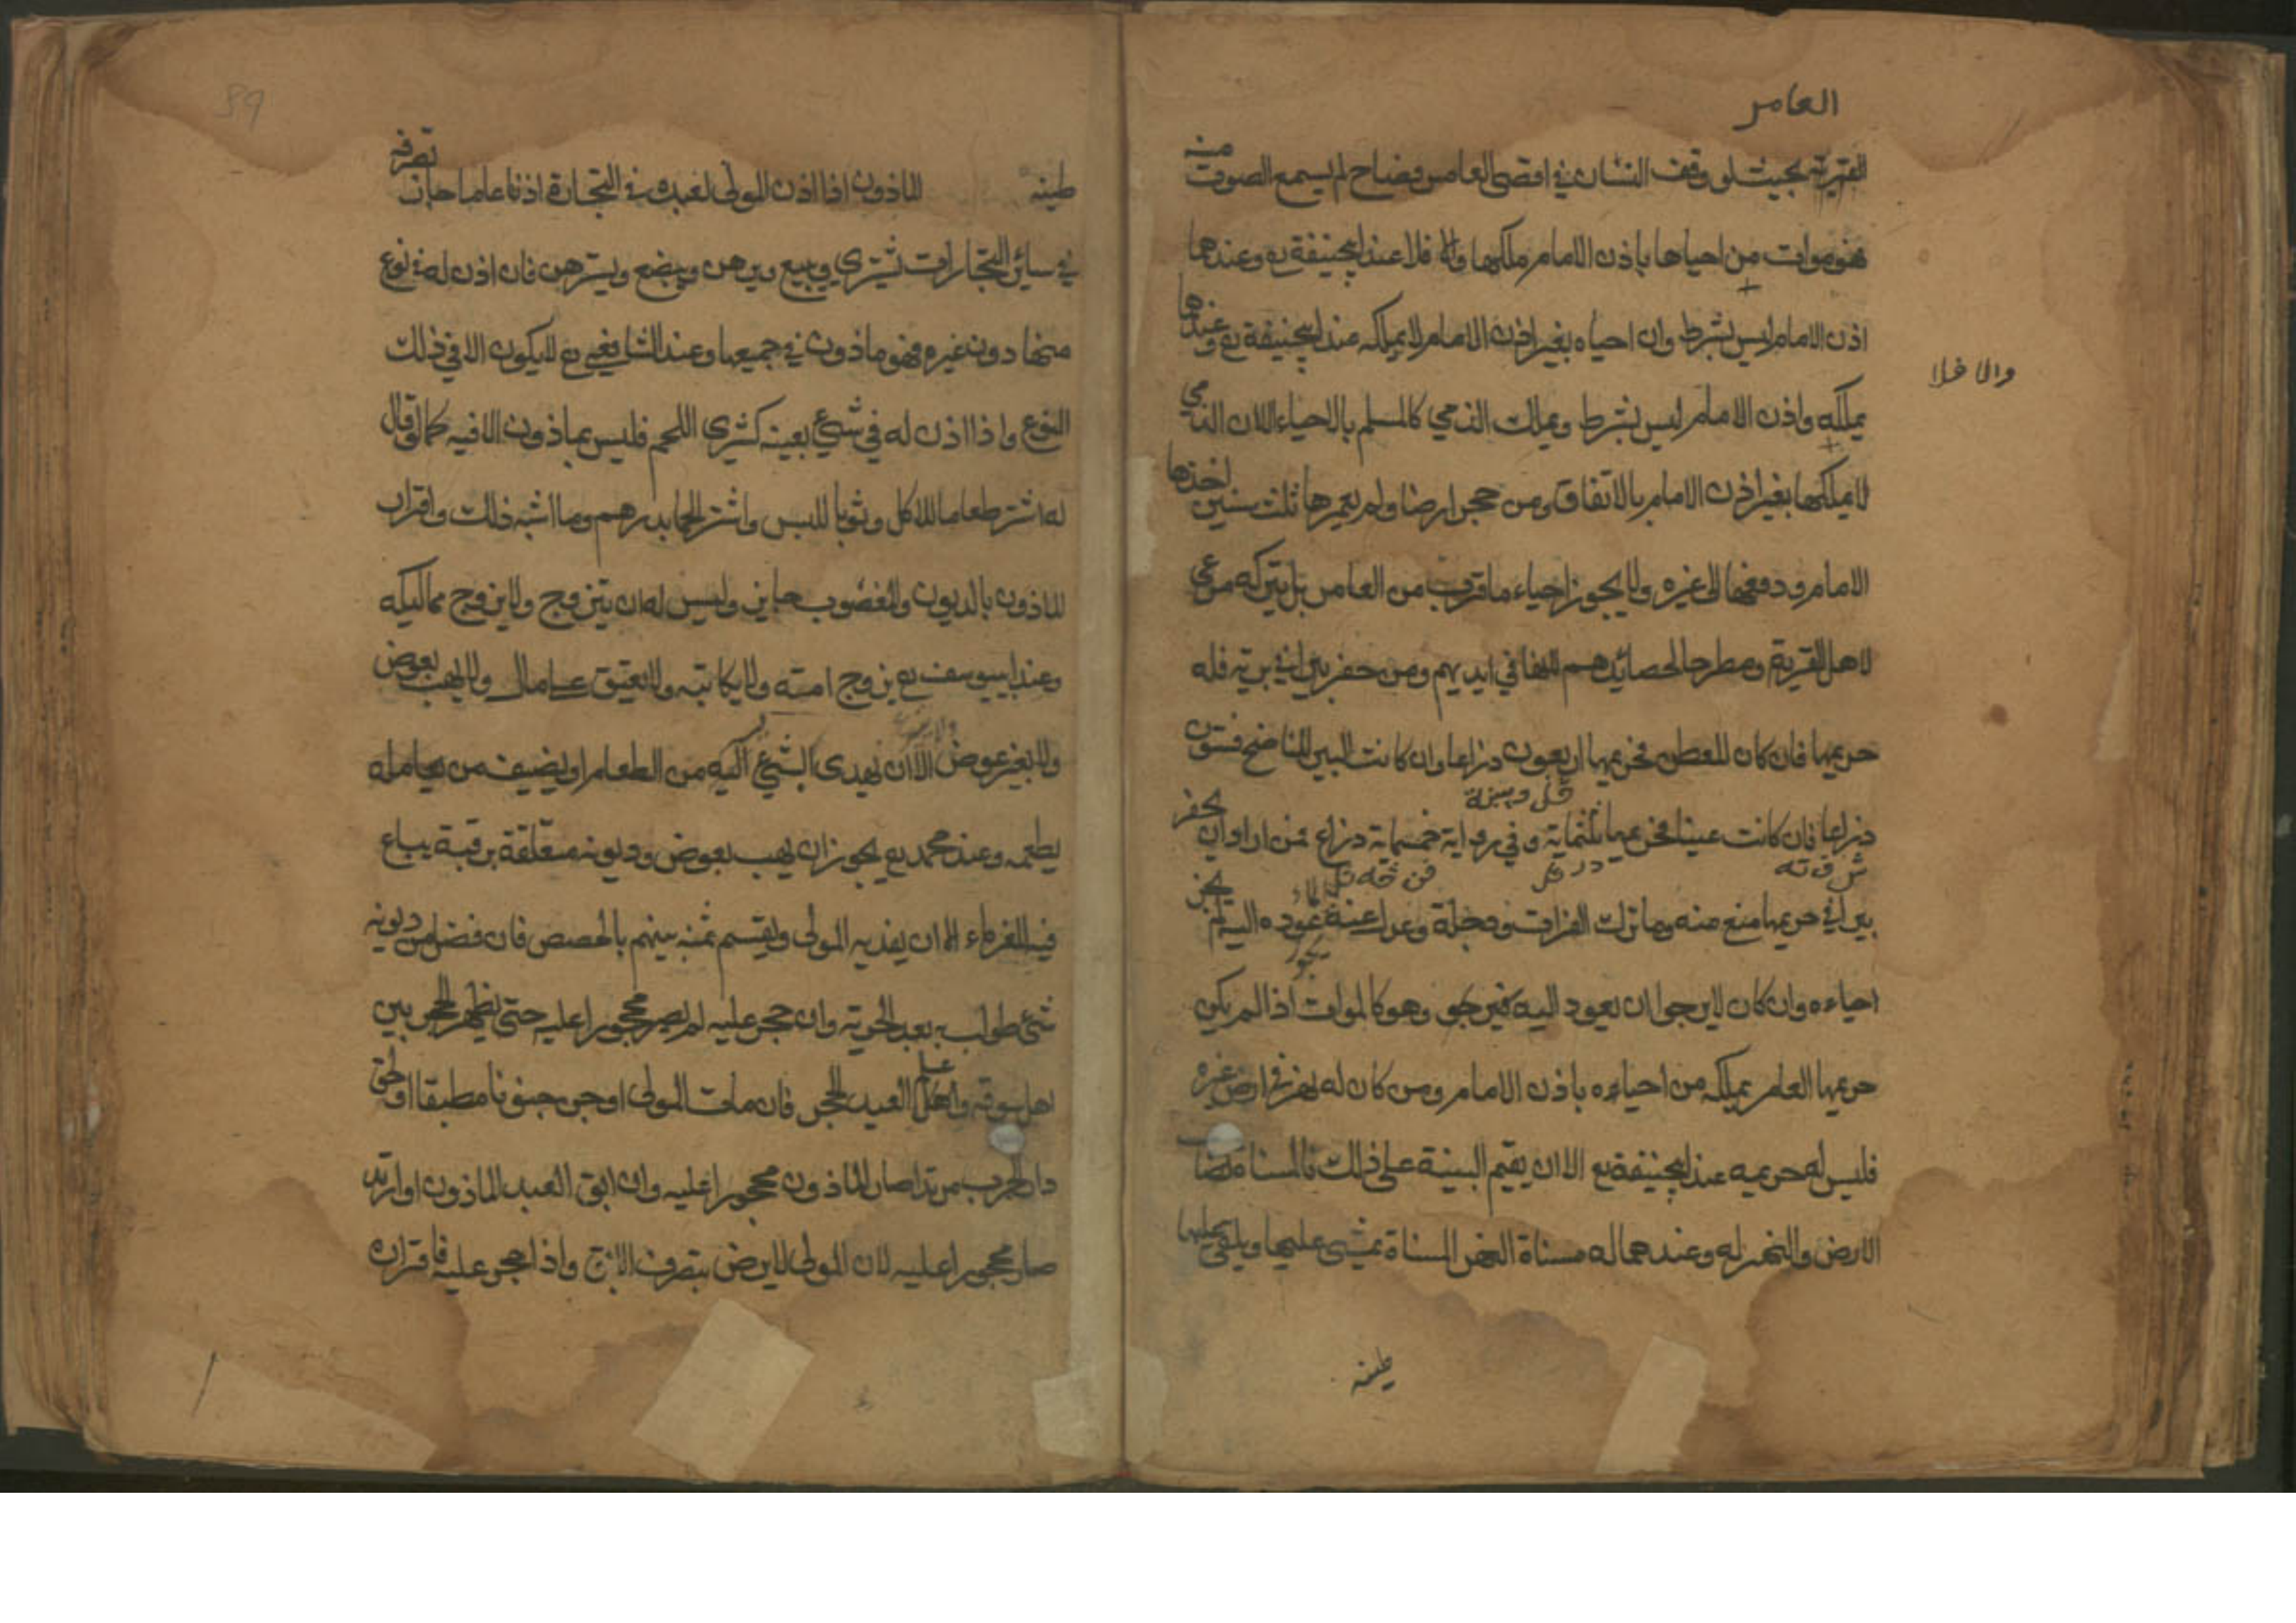 العامر
القرية بحيث لو وقف انسان في اقصى العامر فصاح لم يسمع الصوت منه
فهو موات من احياها باذن الامام ملكها والا فلا عند ابيحنيفة رح وعندهما
اذن الامام ليس بشرط وان احياه بغير اذن الامام لا يملكه عند ابيحنيفة رح وعندهما
والا فلا
يملكه واذن الامام ليس بشرط ويملك الذمي كالمسلم بالاحياء الا ان الذمي
لا يملكها بغير اذن الامام بالاتفاق ومن حجر ارضا ولم يعمرها ثلث سنين اخذها
الامام ودفعها الى غيره ولا يجوز احياء ما قرب من العامر بل يترك مرعى
لاهل القرية ومطرحا لحصائدهم في ايديهم ومن حفر بيرا في برية فله
حريمها فان كان للعطن فحريمها اربعون ذراعا وان كانت البير للناضح فستون
ذراعا فان كانت عينا فحريمها ثلثماية وفي رواية خمسماية ذراع فمن اراد ان يحفر
بيرا في حريمها منع منه وما ترك الفرات ودجلة وعدل عنه عوده اليه لم يجز
يجوز
احياءه وان كان لا يرجوا ان يعود اليه فهو كالموات اذا لم يكن
حريمها العامر يملكه من احياءه باذن الامام ومن كان له نهر في ارض غيره
فليس له حريمه عند ابيحنيفة رح الا ان يقيم البينة على ذلك فالمسناة لصاحب
الارض والنهر له وعندهما له مسناة النهر المسناة يمشي عليها ويلقي عليها
طينه
89
طينه الماذون اذا اذن المولى لعبده في التجارة اذنا عاما جاز تصرفه
في سائر التجارات يشتري ويبيع ويرهن ويبضع ويسترهن فان اذن له في نوع
منها دون غيره فهو ماذون في جميعها وعند الشافعي رح لا يكون الا في ذلك
النوع واذا اذن له في شئ بعينه كشرى اللحم فليس بماذون الا فيه كما لو قال
له اشتر طعاما للاكل وثوبا للبس واشتر لحما بدرهم وما اشبه ذلك واقرار
الماذون بالديون والغصوب جايز وليس له ان يتزوج ولا يزوج مماليكه
وعند ابييوسف رح يزوج امته ولا يكاتبه ولا يعتق على مال ولا يهب بعوض
ولا بغير عوض الا ان يهدى الشئ اليسير من الطعام او يضيف من يعامله
يطعمه وعند محمد رح يجوز ان يهب بعوض وديونه متعلقة برقبته يباع
فيه للغرماء الا ان يفديه المولى ويقسم ثمنه بينهم بالحصص فان فضل من ديونه
شئ طولب به بعد الحرية وان حجر عليه لم يصر محجورا عليه حتى يظهر الحجر بين
اهل سوقه وعلم العبد بالحجر فان مات المولى او جن جنونا مطبقا او لحق
دار الحرب مرتدا صار الماذون محجورا عليه وان ابق العبد الماذون او ارتد
صار محجورا عليه لان المولى لا يرضى بتصرف الابق واذا حجر عليه فاقراره